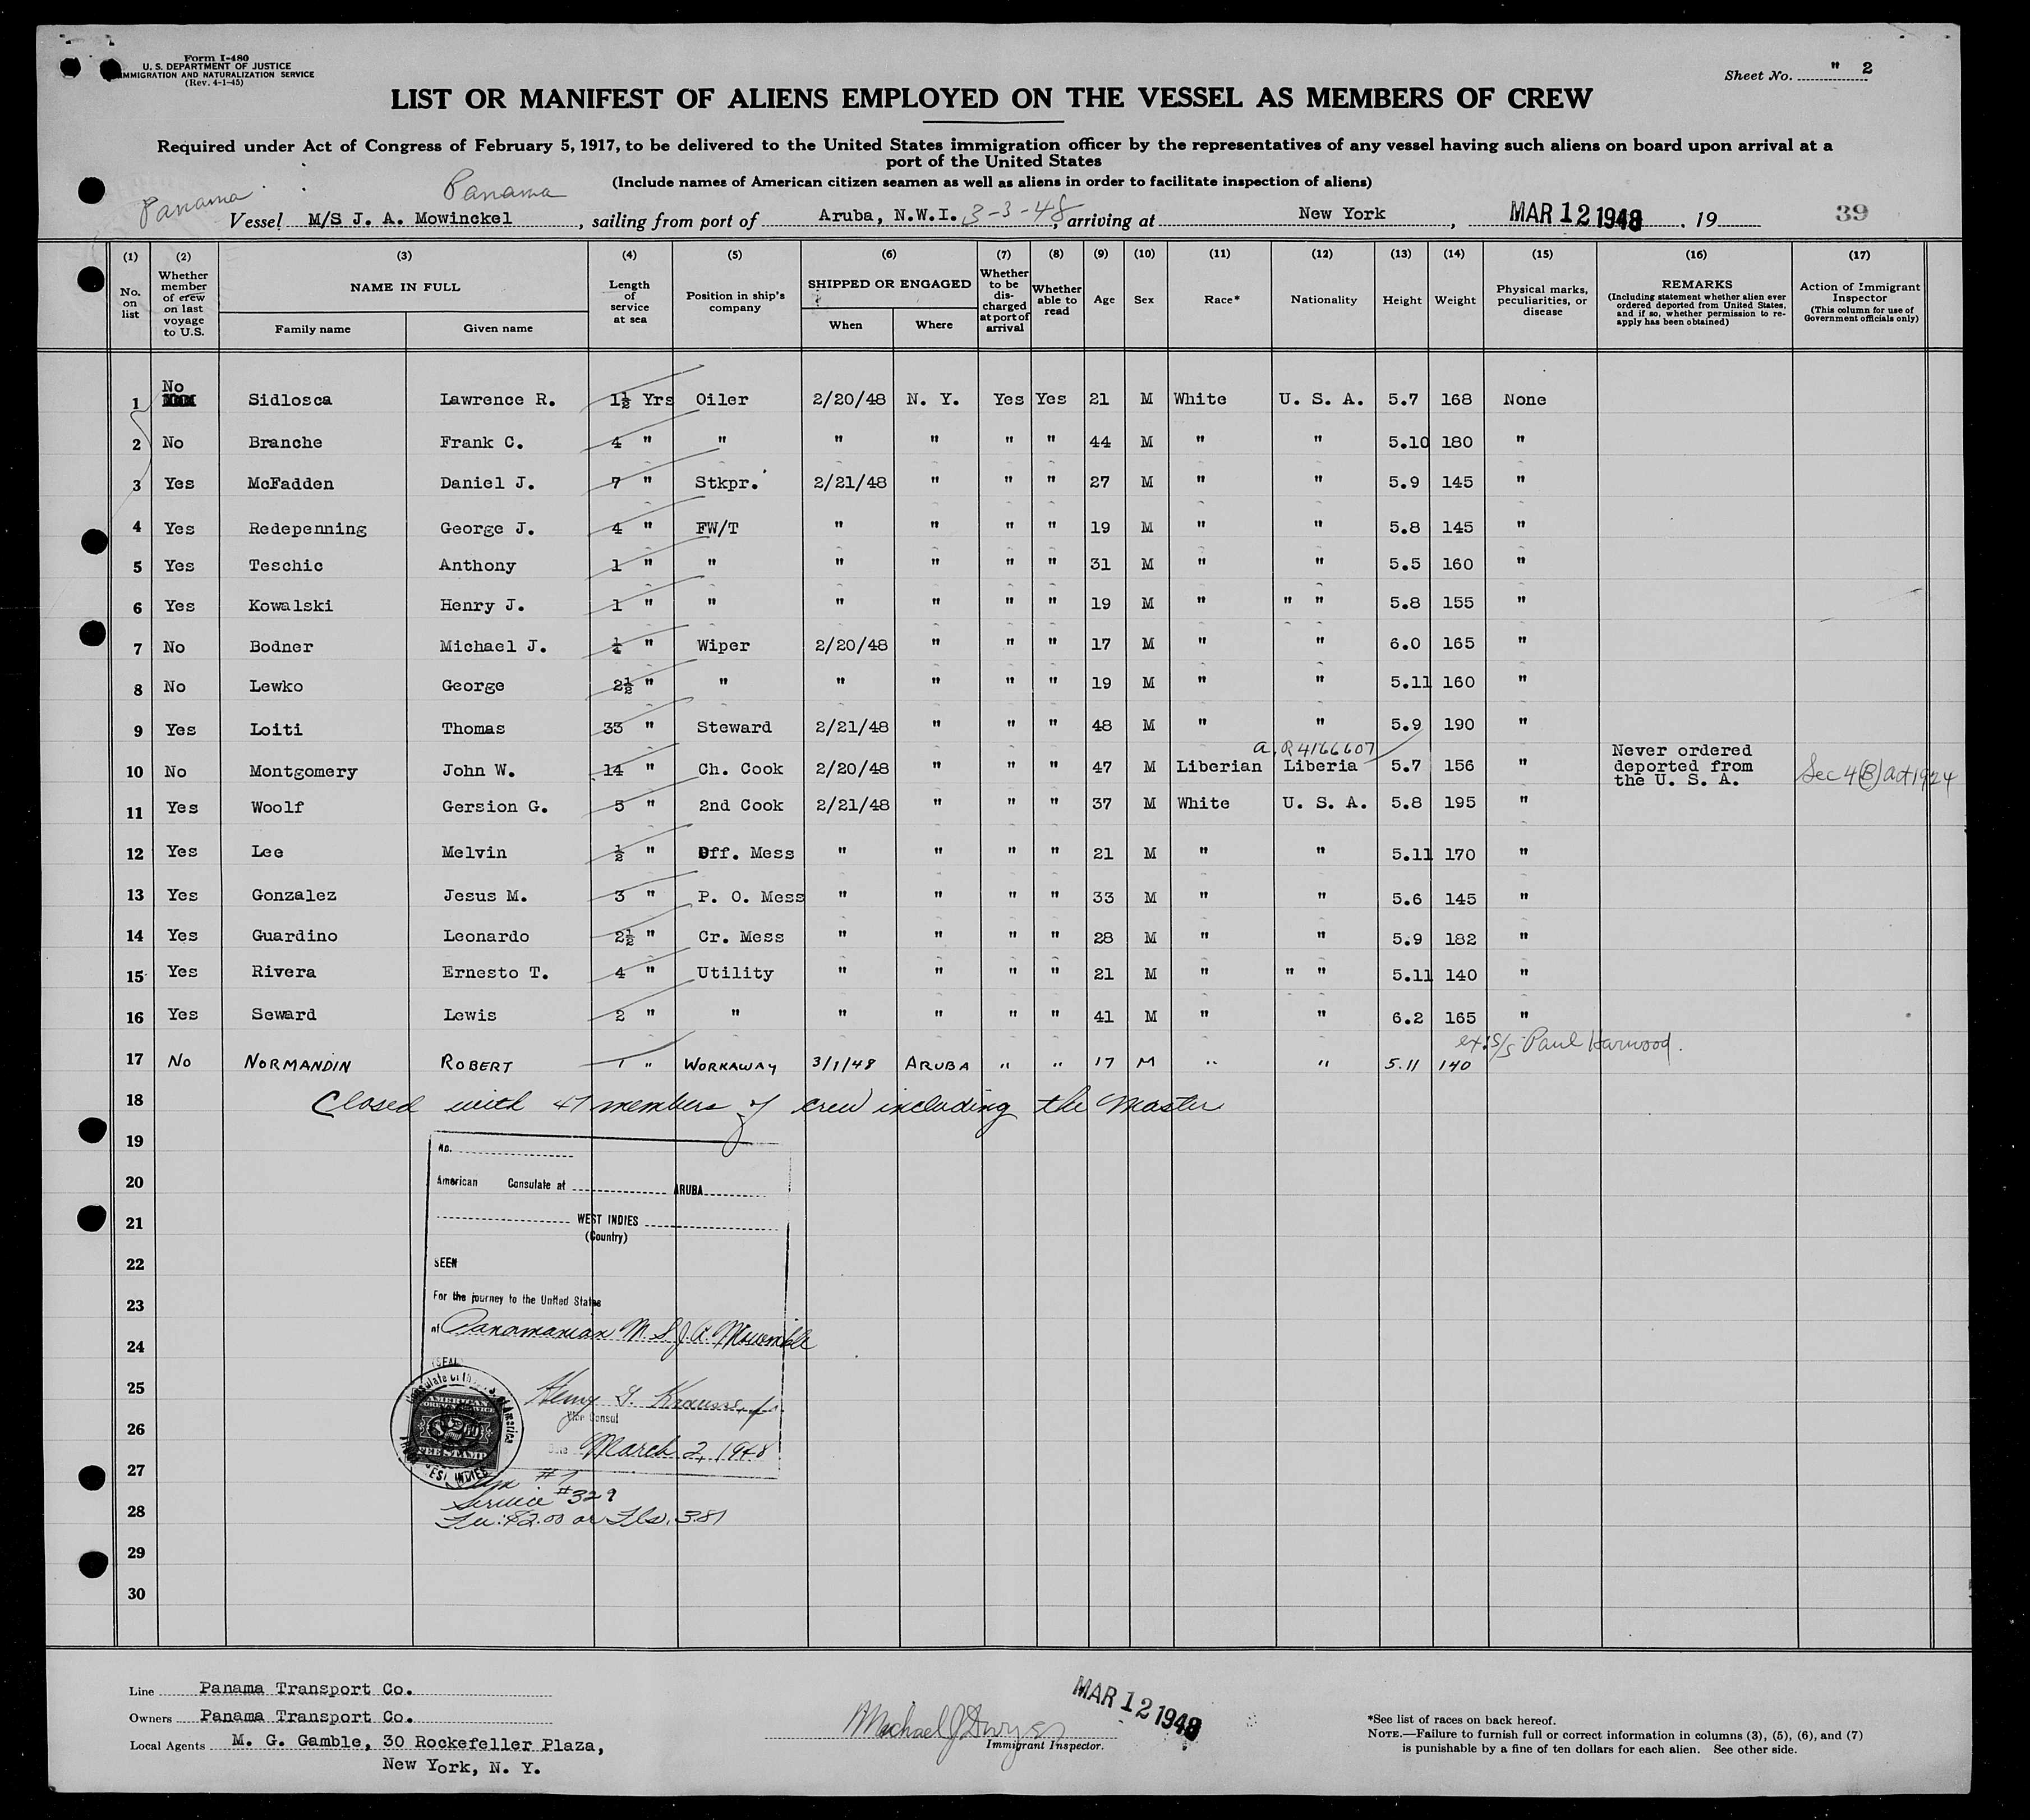 Form I-480
U. S. DEPARTMENT OF JUSTICE
IMMIGRATION AND NATURALIZATION SERVICE
(Rev. 4-1-45)
Sheet No. " 2
LIST OR MANIFEST OF ALIENS EMPLOYED ON THE VESSEL AS MEMBERS OF CREW
Required under Act of Congress of February 5, 1917, to be delivered to the United States immigration officer by the representatives of any vessel having such aliens on board upon arrival at a
port of the United States
(Include names of American citizen seamen as well as aliens in order to facilitate inspection of aliens)
Panama Panama
Vessel M/S J. A. Mowinckel, sailing from port of Aruba, N.W.I. 3-3-48, arriving at New York, MAR 12 1948, 19 39
(1) (2) (3) (4) (5) (6) (7) (8) (9) (10) (11) (12) (13) (14) (15) (16) (17)
No. on list
Whether member of crew on last voyage to U.S.
NAME IN FULL
Family name Given name
Length of service at sea
Position in ship's company
SHIPPED OR ENGAGED
When Where
Whether to be discharged at port of arrival
Whether able to read
Age Sex Race* Nationality Height Weight
Physical marks, peculiarities, or disease
REMARKS
(Including statement whether alien ever ordered deported from United States, and if so, whether permission to reapply has been obtained)
Action of Immigrant Inspector
(This column for use of Government officials only)
1 No Sidlosca Lawrence R. 1½ Yrs Oiler 2/20/48 N. Y. Yes Yes 21 M White U. S. A. 5.7 168 None
2 No Branche Frank C. 4 " " " " " " 44 M " " 5.10 180 "
3 Yes McFadden Daniel J. 7 " Stkpr. 2/21/48 " " " 27 M " " 5.9 145 "
4 Yes Redepenning George J. 4 " FW/T " " " " 19 M " " 5.8 145 "
5 Yes Teschic Anthony 1 " " " " " " 31 M " " 5.5 160 "
6 Yes Kowalski Henry J. 1 " " " " " " 19 M " " " 5.8 155 "
7 No Bodner Michael J. ¼ " Wiper 2/20/48 " " " 17 M " " 6.0 165 "
8 No Lewko George 2½ " " " " " " 19 M " " 5.11 160 "
9 Yes Loiti Thomas 33 " Steward 2/21/48 " " " 48 M " " 5.9 190 "
a. R 4166607
10 No Montgomery John W. 14 " Ch. Cook 2/20/48 " " " 47 M Liberian Liberia 5.7 156 " Never ordered deported from the U. S. A. Sec 4(B) act 1924
11 Yes Woolf Gersion G. 5 " 2nd Cook 2/21/48 " " " 37 M White U. S. A. 5.8 195 "
12 Yes Lee Melvin ½ " Off. Mess " " " " 21 M " " 5.11 170 "
13 Yes Gonzalez Jesus M. 3 " P. O. Mess " " " " 33 M " " 5.6 145 "
14 Yes Guardino Leonardo 2½ " Cr. Mess " " " " 28 M " " 5.9 182 "
15 Yes Rivera Ernesto T. 4 " Utility " " " " 21 M " " " 5.11 140 "
16 Yes Seward Lewis 2 " " " " " " 41 M " " 6.2 165 "
ex. S/S Paul Harwood.
17 No NORMANDIN ROBERT 1 " WORKAWAY 3/1/48 ARUBA " " 17 M " " 5.11 140
18 Closed with 47 members of crew including the Master
19
No.
20
American Consulate at ARUBA
21
WEST INDIES
(Country)
22
SEEN
23
For the journey to the United States
of Panamanian M.S. J.A. Mowinckle
24
(SEAL)
25
AMERICAN FOREIGN SERVICE
$2.00
FEE STAMP
Henry
Vice Consul
26
March 2, 1948
27
#7
Service #329
28
Fee: $2.00 or Fls. 3.81
29
30
Line Panama Transport Co.
Owners Panama Transport Co.
Local Agents M. G. Gamble, 30 Rockefeller Plaza,
New York, N. Y.
MAR 12 1948
Michael J Dwyer
Immigrant Inspector.
*See list of races on back hereof.
NOTE.—Failure to furnish full or correct information in columns (3), (5), (6), and (7)
is punishable by a fine of ten dollars for each alien. See other side.